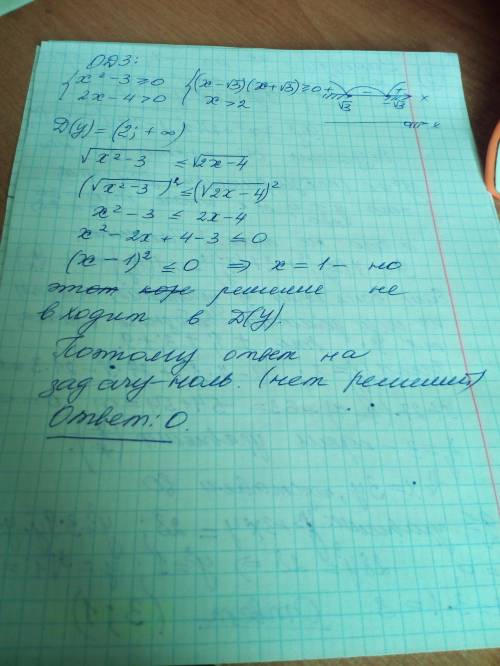 ОДЗ:
{x² - 3 ≥ 0 {(x - √3)(x + √3) ≥ 0 + - +
{2x - 4 > 0 {x > 2 √3 -√3 x
D(y) = (2; + ∞) x
√x² - 3 ≤ √2x - 4
(√x² - 3)² ≤ (√2x - 4)²
x² - 3 ≤ 2x - 4
x² - 2x + 4 - 3 ≤ 0
(x - 1)² ≤ 0 ⇒ x = 1 - но
это решение не
входит в D(y).
Поэтому ответ на
задачу - ноль. (нет решений)
Ответ: 0.